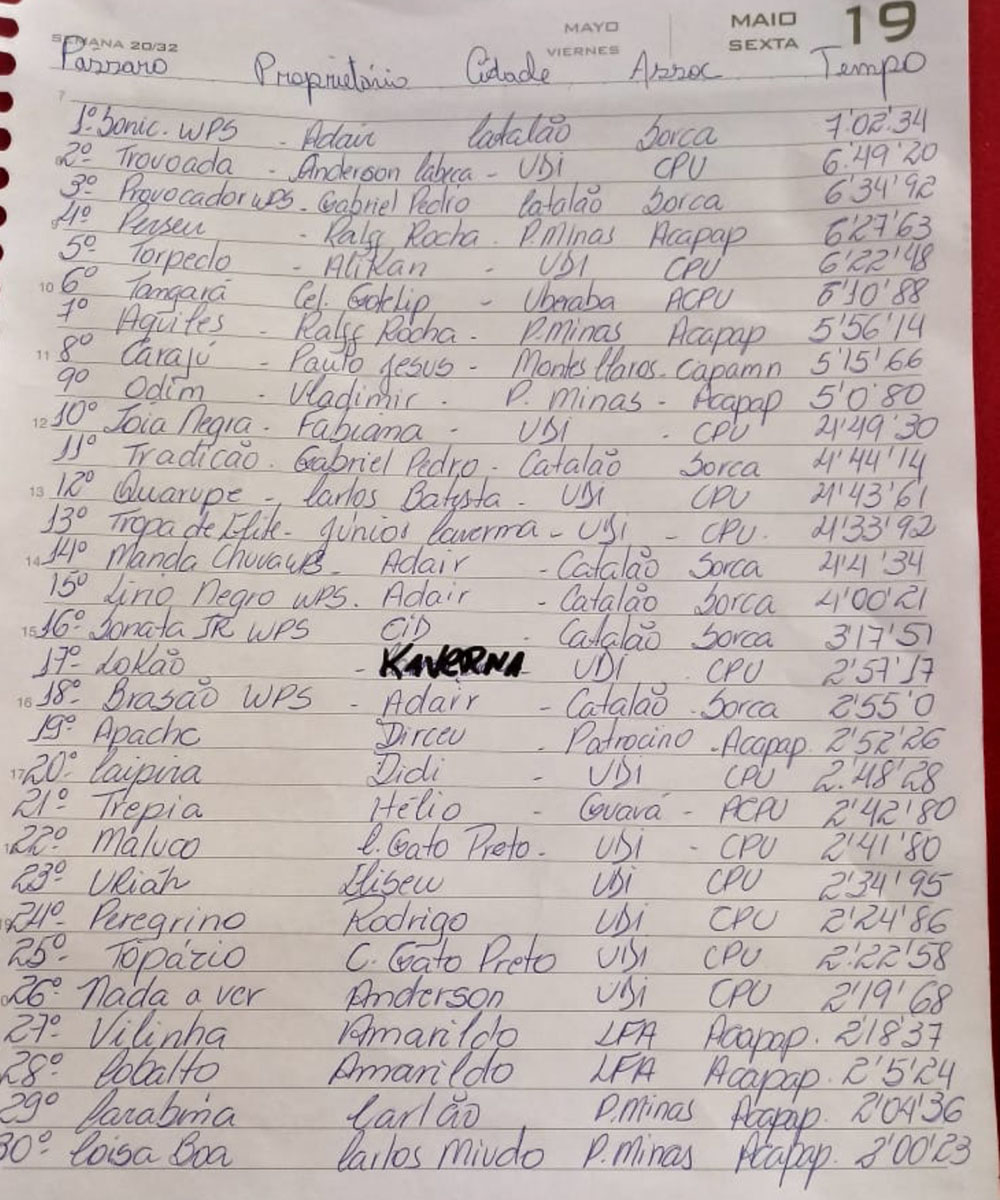 SEMANA 20/32 MAYO VIERNES MAIO SEXTA 19
Pássaro Proprietário Cidade Assoc Tempo
1º Sonic. WPS - Adair Catalão Sorca 7'02'34
2º Trovoada - Anderson Cabeça - UDI CPU 6'49'20
3º Provocador WPS - Gabriel Pedro Catalão Sorca 6'34'92
4º Perseu - Ralff Rocha - P.Minas Acapap 6'27'63
5º Torpedo - AliKan - UDI CPU 6'22'48
10 6º Tangará Cel. Gotelip - Uberaba ACPU 6'10'88
7º Aquiles - Ralff Rocha - P.Minas Acapap 5'56'14
11 8º Carajú - Paulo Jesus - Montes Claros - Capamn 5'15'66
9º Odim - Vladimir - P. Minas - Acapap 5'0'80
12 10º Joia Negra - Fabiana - UDI - CPU 4'49'30
11º Tradição - Gabriel Pedro - Catalão Sorca 4'44'14
13 12º Quarupe - Carlos Batysta - UDI CPU 4'43'61
13º Tropa de Elite - Júnios Caverma - UDI - CPU. 4'33'92
14 14º Manda Chuva WPS - Adair - Catalão Sorca 4'4'34
15º Lírio Negro WPS. Adair - Catalão Sorca 4'00'21
15 16º Sonata JR WPS CiD - Catalão Sorca 3'17'51
17º Lokão - KAVERNA UDI CPU 2'57'17
16 18º Brasão WPS - Adair - Catalão - Sorca 2'55'0
19º Apache Dirceu - Patrocino - Acapap 2'52'26
17 20º Caipira Didi - UDI CPU 2'48'28
21º Trepia Hélio - Guará - ACPU 2'42'80
22º Maluco C. Gato Preto - UDI - CPU 2'41'80
23º Uriáh Eliseu UDI CPU 2'34'95
24º Peregrino Rodrigo UDI CPU 2'24'86
25º Topázio C. Gato Preto UDI CPU 2'22'58
26º Nada a ver Anderson UDI CPU 2'19'68
27º Vilinha Amarildo LFA Acapap. 2'18'37
28º Cobalto Amarildo LFA Acapap. 2'5'24
29º Carabina Carlão P.Minas Acapap. 2'04'36
30º Coisa Boa Carlos Miudo P.Minas Acapap. 2'00'23